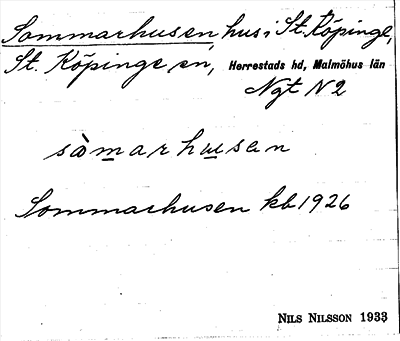 Sommarhusen, hus i St. Köpinge,
St. Köpinge sn, Herrestads hd, Malmöhus län
Ngt N2
sòmarhusen
Sommarhusen kb 1926
NILS NILSSON 1933